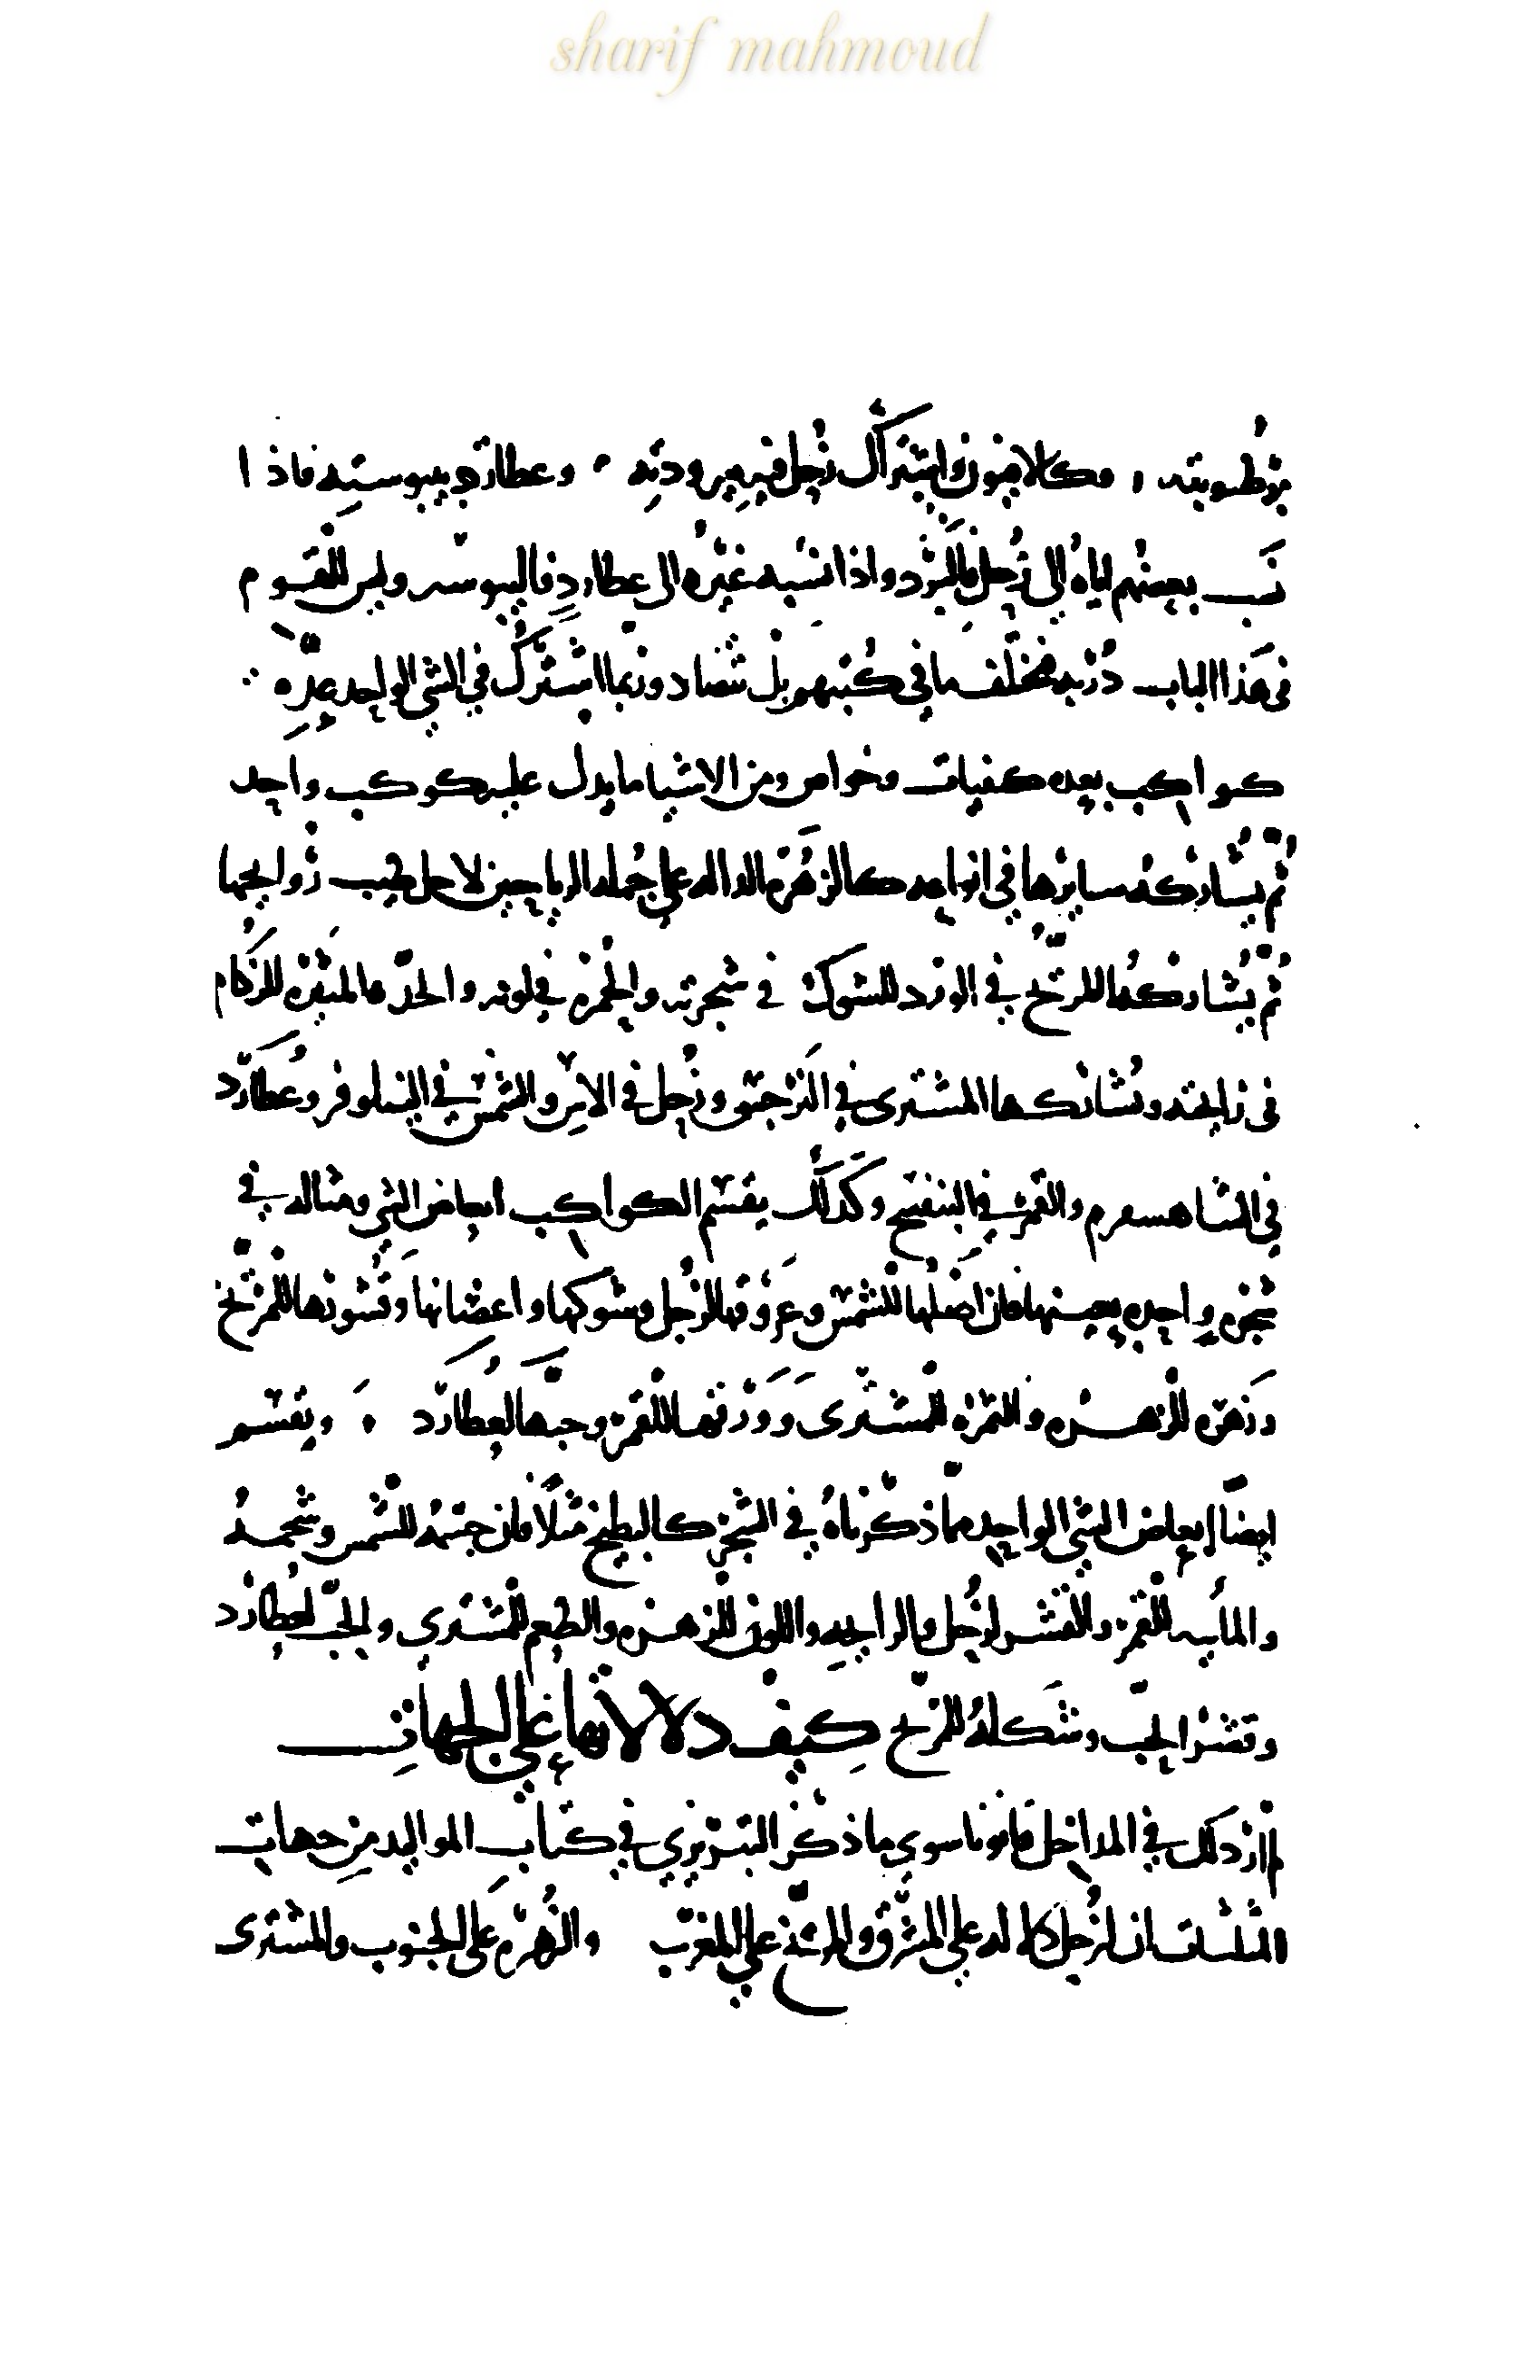 sharif mahmoud
برطوبته وكالافيون واشتراك زحل فيه ببرودته وعطارد بيبوسته فاذا
نسب بعضهم اياه الى زحل فللبرد واذا نسبه غيره الى عطارد فلليبوسه وليس للقوم
فى هذا الباب دربه فمختلف ما فى كتبهم بل متضاد وربما اشترك في الشي الواحد عدة
كواكب بعدة كيفيات وخواص ومن الاشيا ما يدل عليه كوكب واحد
ثم يشاركه سايرها في انواعه كالزهرة الداله على جمله الرياحين لاجل طيب روايحها
ثم يشاركها المريخ في الورد للشوك في شجرته والحمرة في لونه والحدة المثيرة للزكام
في رايحته ويشاركها المشترى في النرجس وزحل في الاس والشمس في النيلوفر وعطارد
في الشاهسفرم والقمر في البنفسج وكذلك يقتسم الكواكب ابعاض الشي ومثاله في
شجره واحده بعينها فان اصلها للشمس وعروقها لزحل وشوكها واغصانها وقشورها للمريخ
وزهره للزهره والثمرة للمشترى وورقها للقمر وحبها لعطارد ويقتسم
ايضا ابعاض الشي الواحد مما ذكرناه في الشجر كالبطيخ مثلا فان جثته للشمس وشحمه
والماييه للقمر والقشر لزحل والرايحه واللون للزهره والطعم للمشتري والحب لعطارد
وقشر الحب وشكله للمريخ كيف دلالاتها على الجهات
لم ار ذلك في المداخل قانونا سوى ما ذكر التبريزي في كتاب المواليد من جهات
المثلثات ان لزحل دلاله على المشرق والمريخ على المغرب والزهره على الجنوب والمشترى